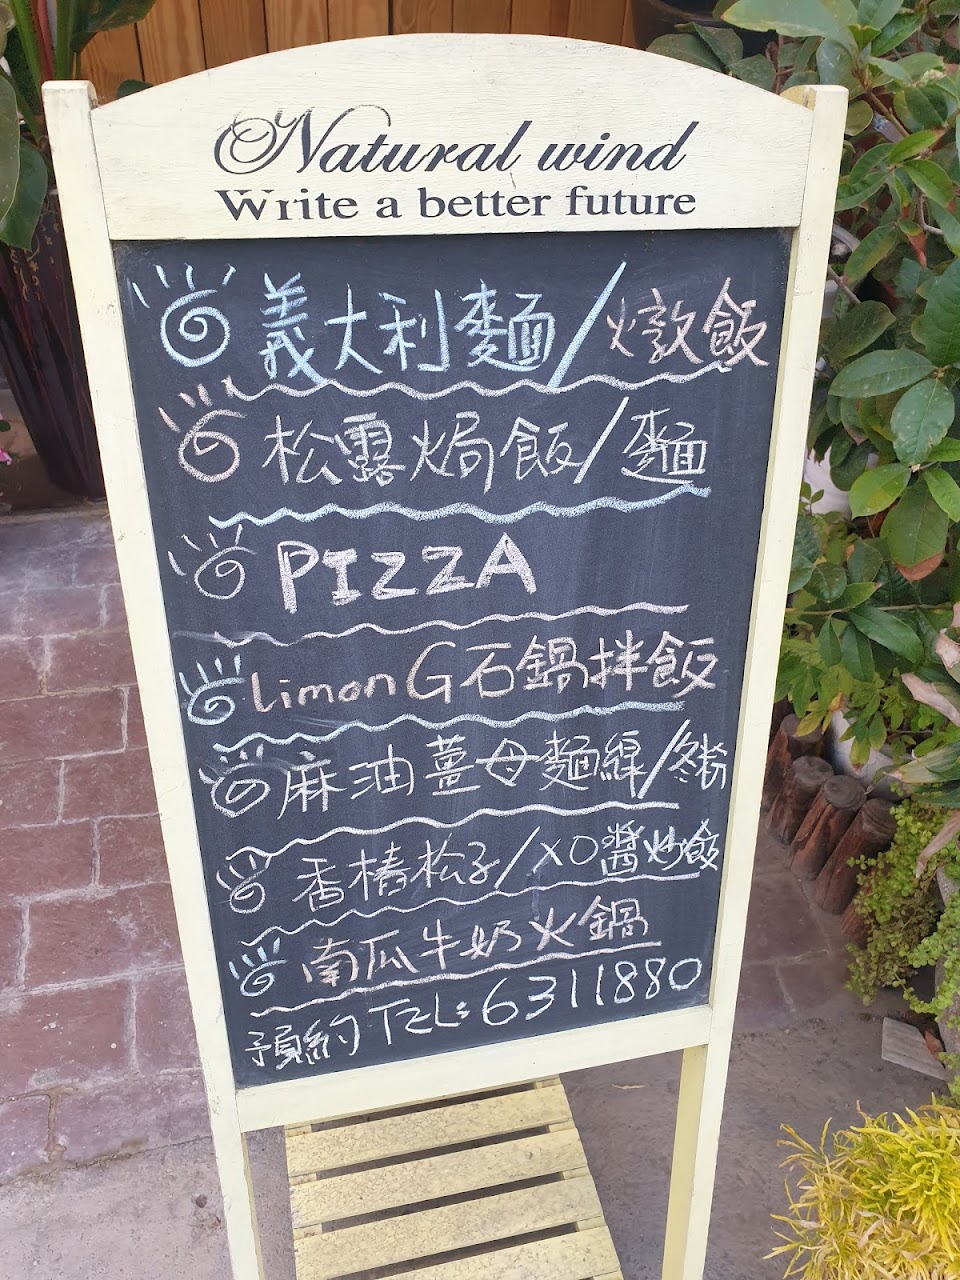 Natural wind
Write a better future
義大利麵/燉飯
松露焗飯/麵
PIZZA
limonG石鍋拌飯
麻油薑母麵線/冬粉
香椿松子/XO醬炒飯
南瓜牛奶火鍋
預約TEL:6311880